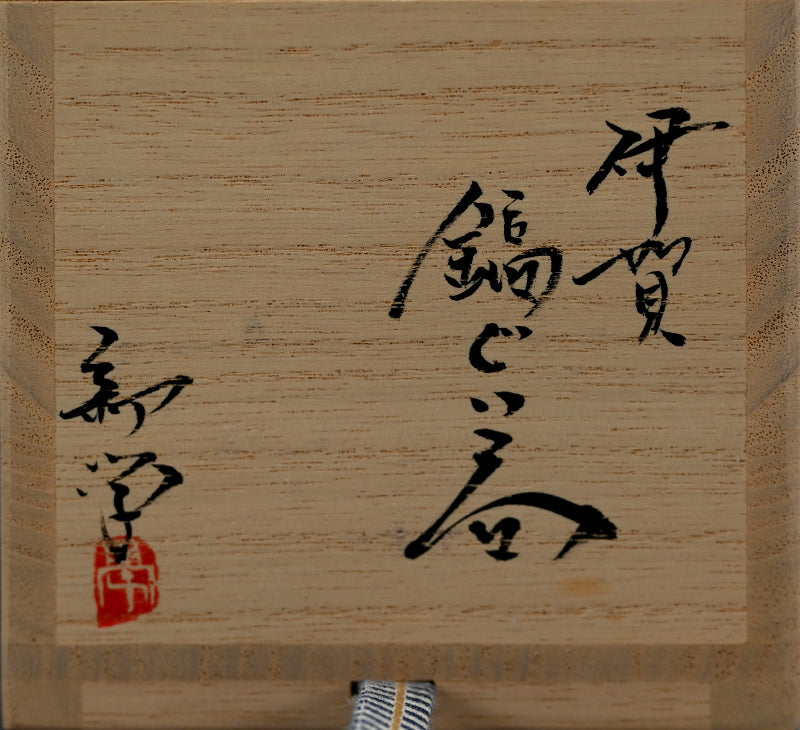 伊賀
鎬ぐい呑
新学